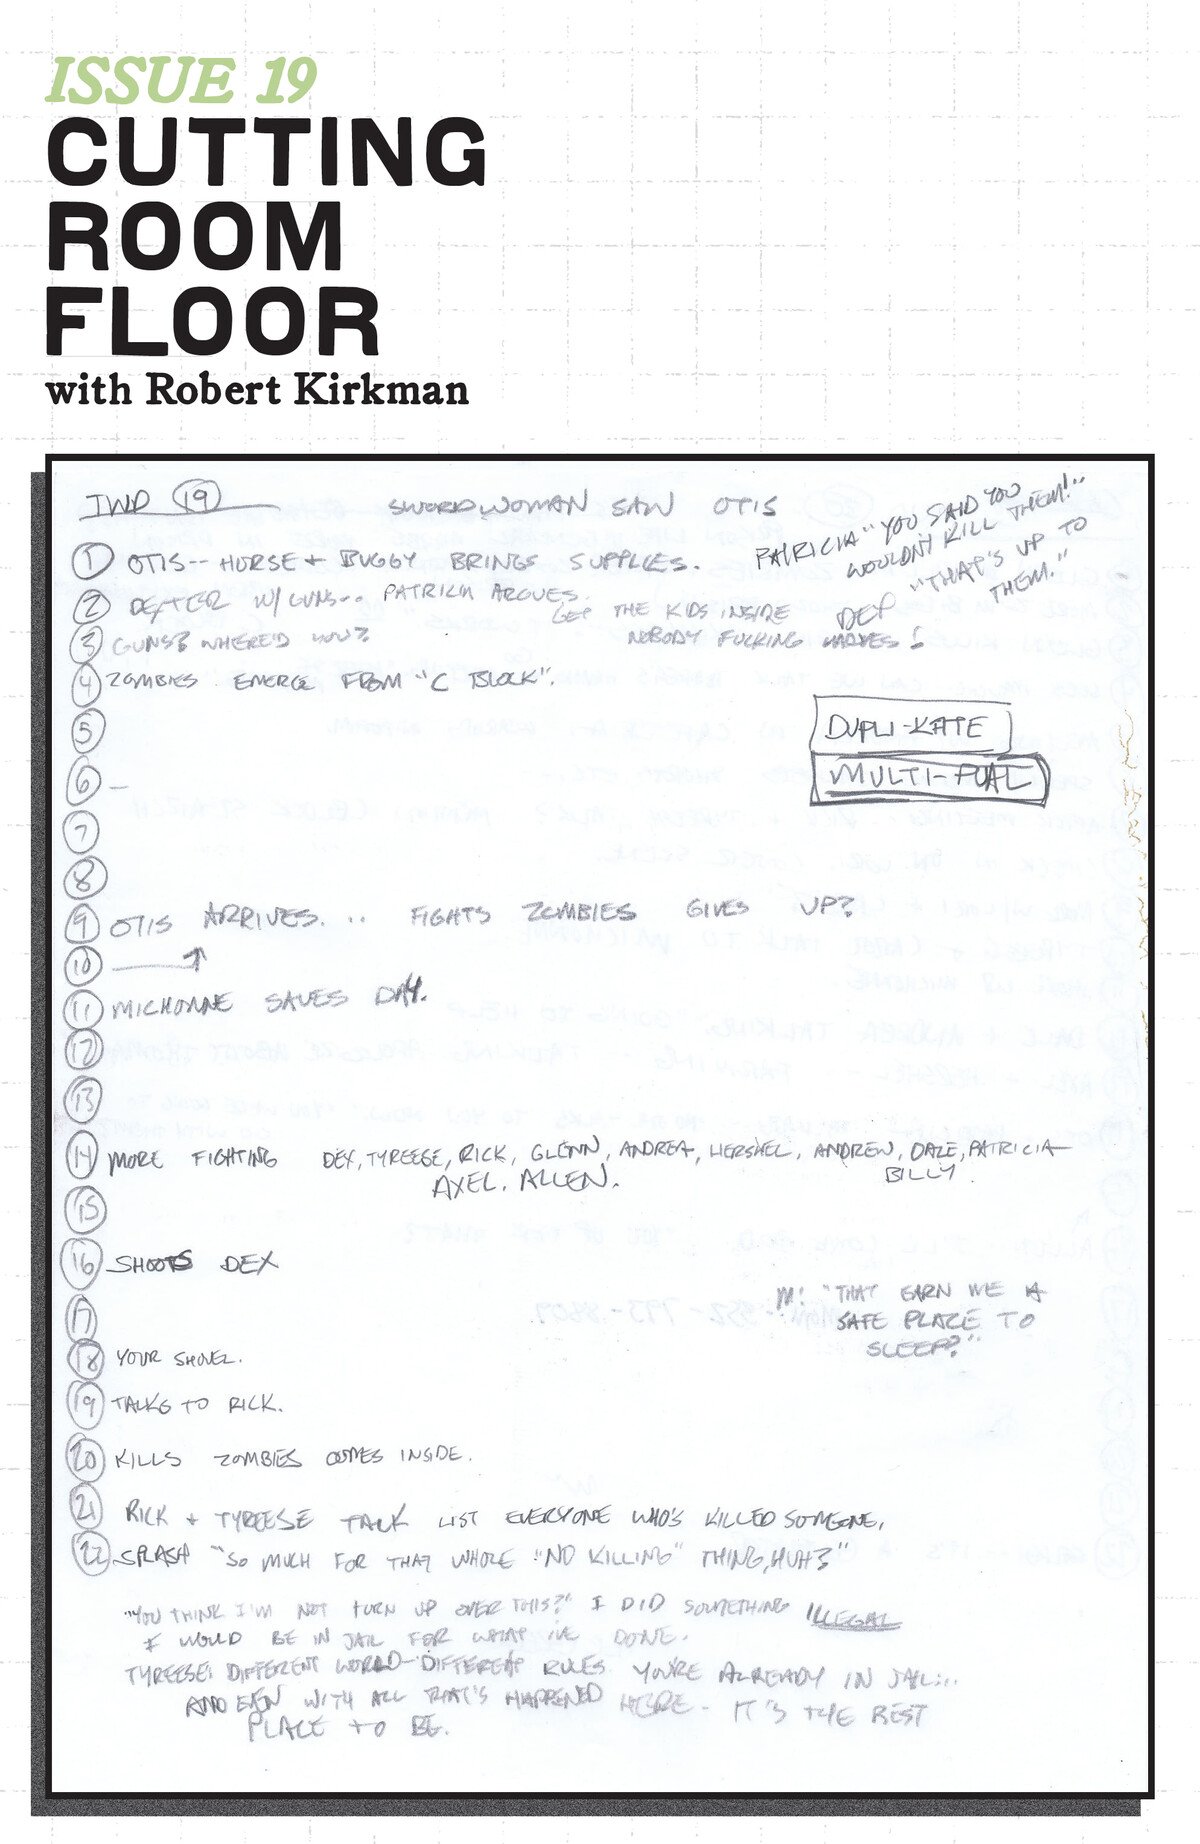 ISSUE 19
CUTTING
ROOM
FLOOR
with Robert Kirkman
TWD 19 SWORDWOMAN SAW OTIS
PATRICIA "YOU SAID YOU
WOULDN'T KILL THEM!"
"THAT'S UP TO
THEM."
1 OTIS-- HORSE + BUGGY BRINGS SUPPLIES.
2 DEXTER W/ GUNS.. PATRICIA ARGUES.
GET THE KIDS INSIDE DEP
3 GUNS? WHERE'D YOU? NOBODY FUCKING MOVES!
4 ZOMBIES EMERGE FROM "C BLOCK".
5
DUPLI-KATE
6 –
MULTI-PUAL
7
8
9 OTIS ARRIVES... FIGHTS ZOMBIES GIVES UP?
10
11 MICHONNE SAVES DAY.
12
13
14 MORE FIGHTING DEX, TYREESE, RICK, GLENN, ANDREA, HERSHEL, ANDREW, DALE, PATRICIA
AXEL. ALLEN. BILLY.
15
16 SHOOTS DEX
M: "THAT EARN ME A
SAFE PLACE TO
SLEEP?"
17
18 YOUR SHOVEL.
19 TALKS TO RICK.
20 KILLS ZOMBIES COMES INSIDE.
21 RICK + TYREESE TALK LIST EVERYONE WHO'S KILLED SOMEONE,
22 SPLASH "SO MUCH FOR THAT WHOLE "NO KILLING" THING, HUH?"
"YOU THINK I'M NOT TURN UP OVER THIS?" I DID SOMETHING ILLEGAL
I WOULD BE IN JAIL FOR WHAT I'VE DONE.
TYREESE: DIFFERENT WORLD-DIFFERENT RULES YOU'RE ALREADY IN JAIL...
AND EVEN WITH ALL THAT'S HAPPENED HERE- IT'S THE BEST
PLACE TO BE.